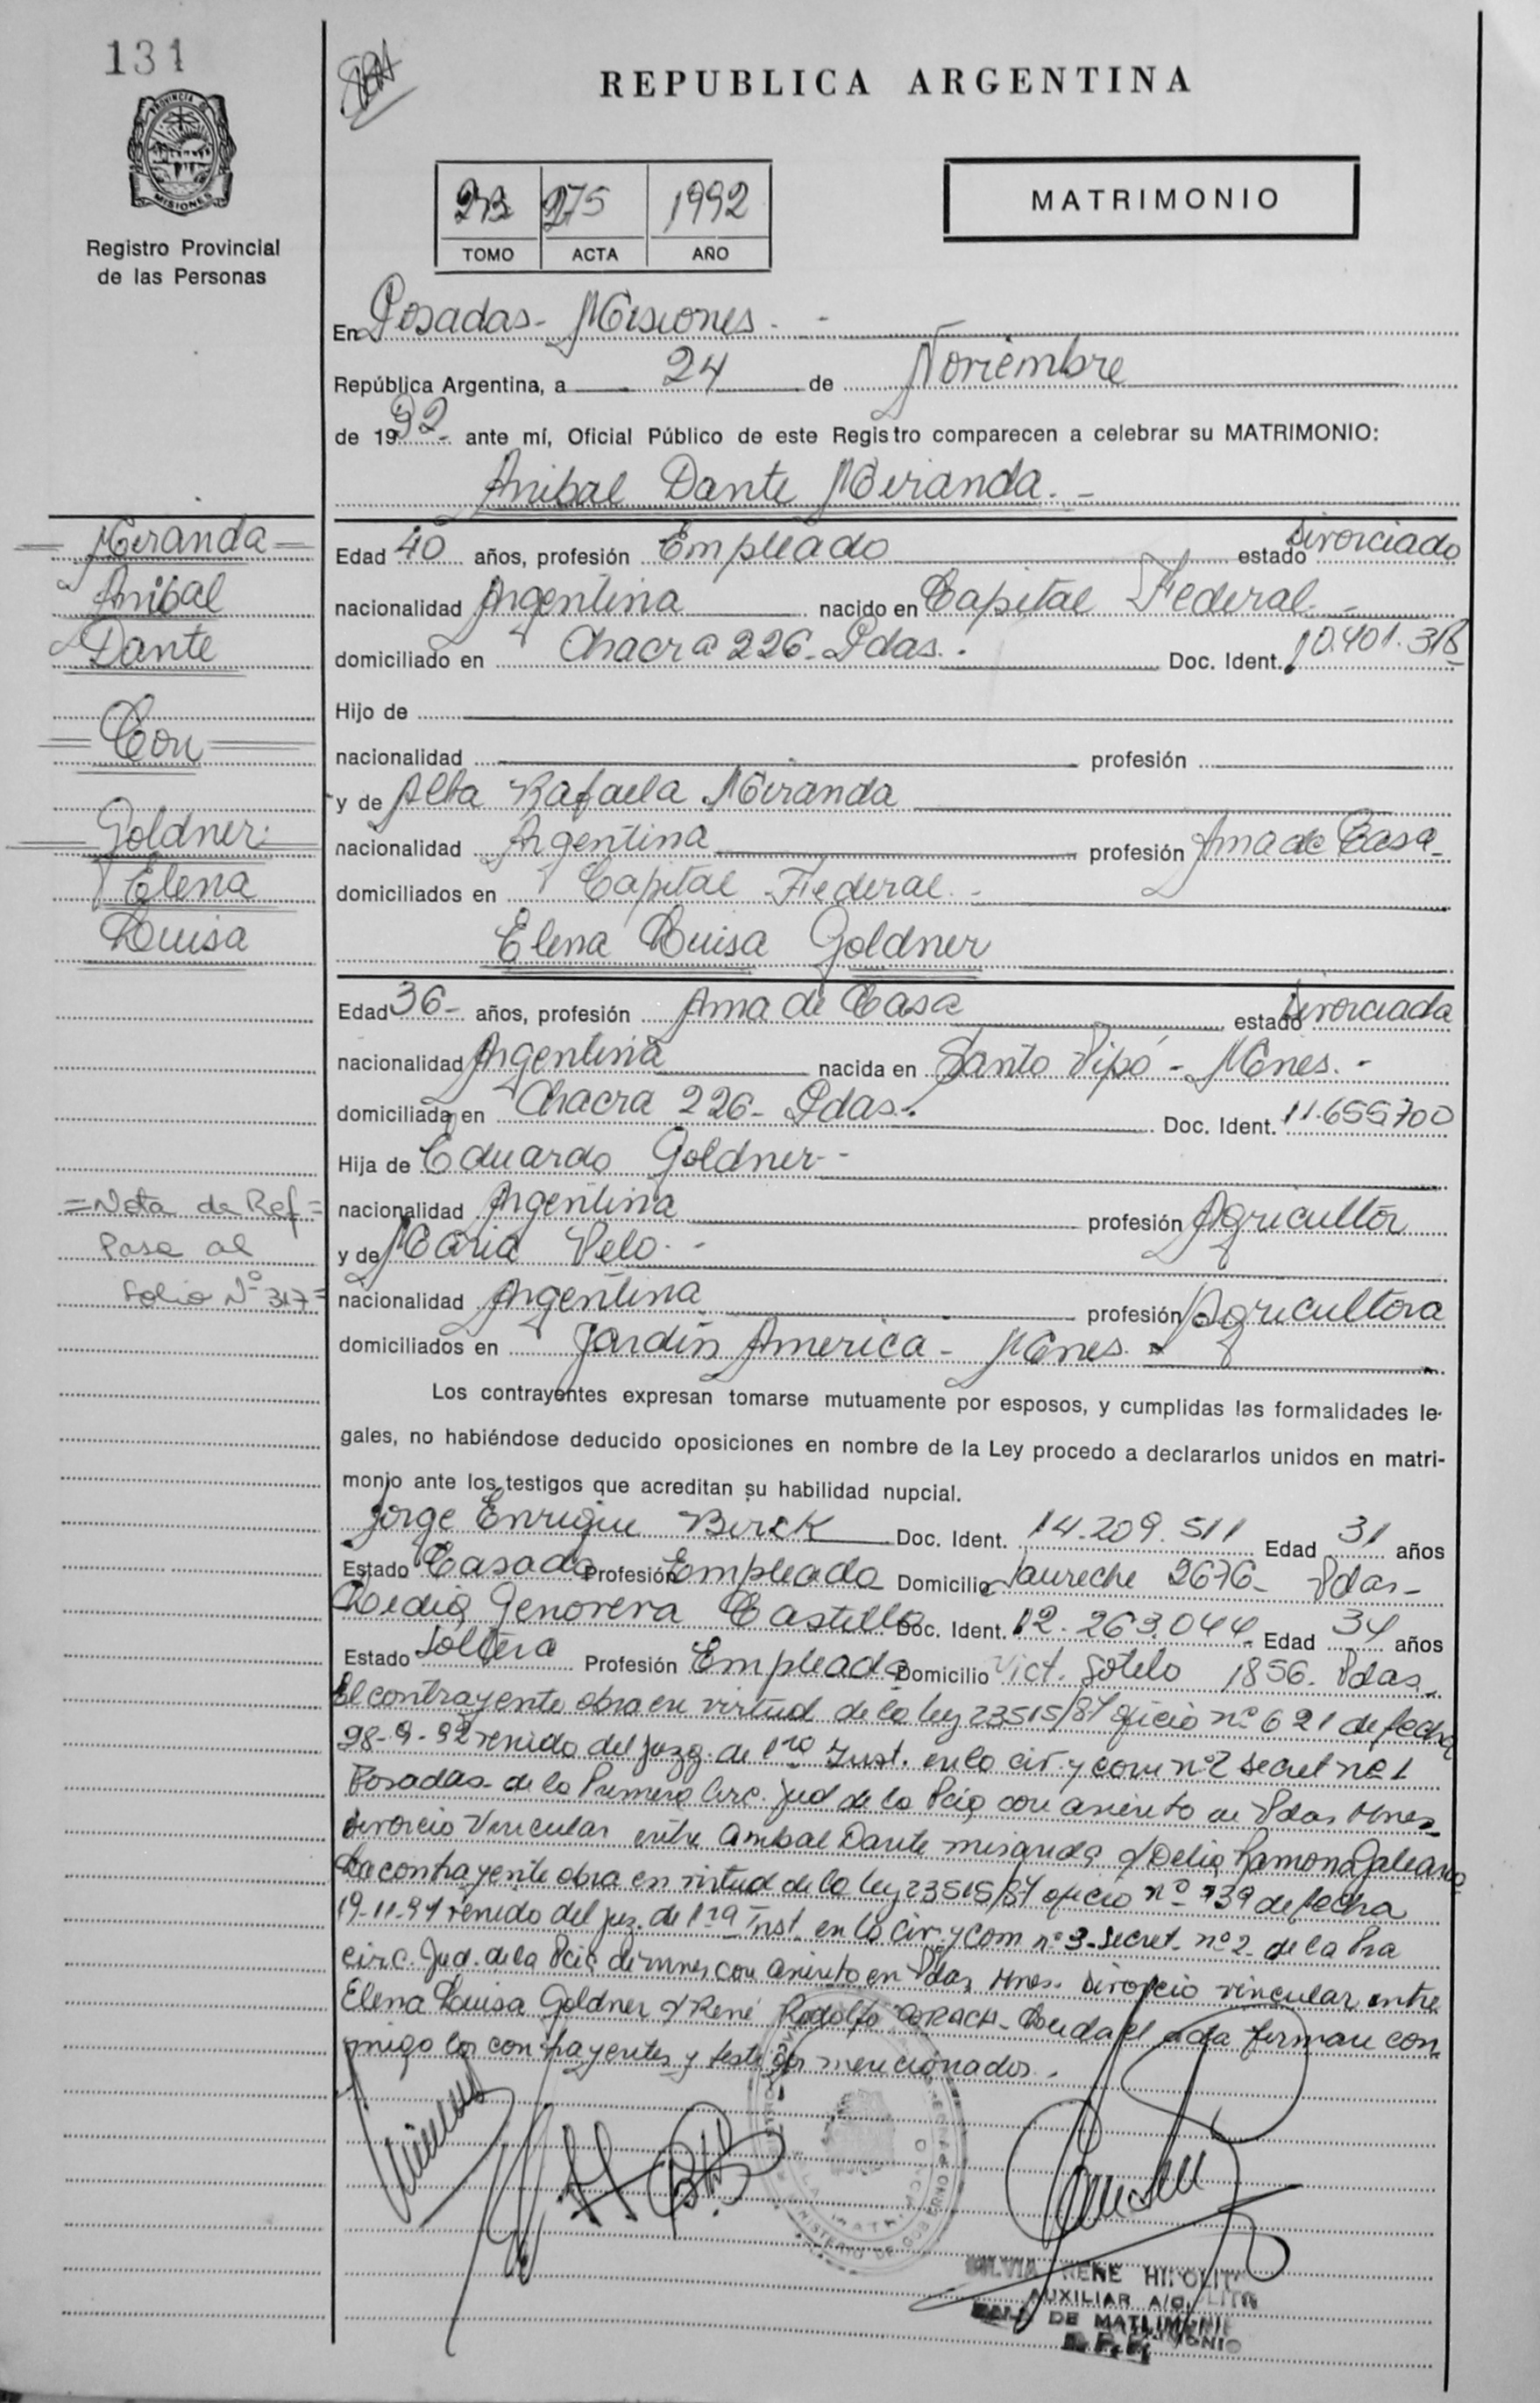 131
PROVINCIA DE
MISIONES
Registro Provincial
de las Personas
REPUBLICA ARGENTINA
275 1992
TOMO ACTA AÑO
MATRIMONIO
En Posadas - Misiones. -
República Argentina, a 24 de Noviembre
de 1992 ante mí, Oficial Público de este Registro comparecen a celebrar su MATRIMONIO:
Anibal Dante Miranda. -
Miranda
Anibal
Dante
Con
Goldner
Elena
Luisa
= Nota de Ref =
Pasa al
Folio Nº 317 =
Edad 40 años, profesión Empleado estado divorciado
nacionalidad Argentina nacido en Capital Federal -
domiciliado en Chacra 226 - Pdas. Doc. Ident. 10.401.318
Hijo de
nacionalidad profesión
y de Alba Rafaela Miranda
nacionalidad Argentina profesión Ama de Casa -
domiciliados en Capital Federal. -
Elena Luisa Goldner
Edad 36 - años, profesión Ama de Casa estado divorciada
nacionalidad Argentina nacida en Santo Pipó - Mnes. -
domiciliada en Chacra 226 - Pdas. Doc. Ident. 11.655700
Hija de Eduardo Goldner -
nacionalidad Argentina profesión Agricultor
y de Maria Velo. -
nacionalidad Argentina profesión Agricultora
domiciliados en Jardín America - Mnes.
Los contrayentes expresan tomarse mutuamente por esposos, y cumplidas las formalidades le-
gales, no habiéndose deducido oposiciones en nombre de la Ley procedo a declararlos unidos en matri-
monio ante los testigos que acreditan su habilidad nupcial.
Jorge Enrique Birck Doc. Ident. 14.209.511 Edad 31 años
Estado Casado Profesión Empleado Domicilio Jaureche 2676 - Pdas -
Genoveva Castillo Doc. Ident. 12.263.044 Edad 34 años
Estado Soltera Profesión Empleada Domicilio Vict. Sotelo 1856. Pdas -
El contrayente obra en virtud de la ley 23515/87 oficio nº 621 de fecha
98-9-92 venido del juzg. de 1ro Inst. en lo civ. y com nº 2 secret nº 1
Posadas - de la Primera Circ. Jud de la Pcia con asiento en Pdas Mnes -
divorcio Vincular entre Anibal Dante Miranda y Delia Ramona Galeano
La contrayente obra en virtud de la ley 23515/87 oficio nº 739 de fecha
19-11-91 venido del juz. de 1ra Inst. en lo Civ. y Com nº 3 - Secret - nº 2 - de la Pra
circ. Jud. de la Pcia de mnes con asiento en Pdas Mnes. divorcio vincular entre
Elena Luisa Goldner y René Rodolfo - Leida el acta firman con
migo los contrayentes y testigos mencionados. -
MINISTERIO DE GOBIERNO
SILVIA RENE HIPOLITO
AUXILIAR A/C.
SALA DE MATRIMONIO
R. P. P.